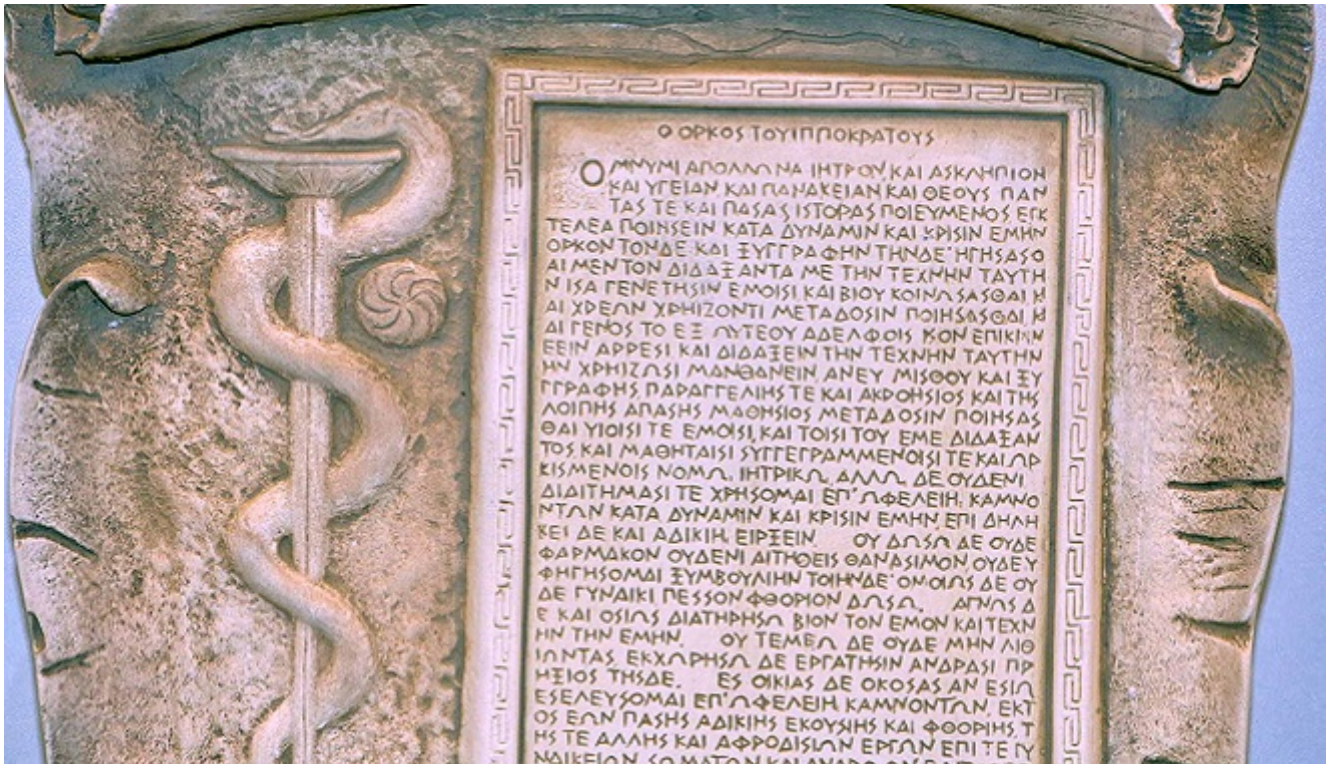 Ο ΟΡΚΟS ΤΟΥ ΙΠΠΟΚΡΑΤΟΥS
ΟΜΝΥΜΙ ΑΠΟΛΛΩΝΑ ΙΗΤΡΟΝ, ΚΑΙ ΑSΚΛΗΠΙΟΝ
ΚΑΙ ΥΓΕΙΑΝ ΚΑΙ ΠΑΝΑΚΕΙΑΝ ΚΑΙ ΘΕΟΥS ΠΑΝ
ΤΑS ΤΕ ΚΑΙ ΠΑSΑS ΙSΤΟΡΑS ΠΟΙΕΥΜΕΝΟS ΕΠΚ
ΤΕΛΕΑ ΠΟΙΗSΕΙΝ ΚΑΤΑ ΔΥΝΑΜΙΝ ΚΑΙ ΚΡΙSΙΝ ΕΜΗΝ
ΟΡΚΟΝ ΤΟΝΔΕ ΚΑΙ ΞΥΓΓΡΑΦΗΝ ΤΗΝΔΕ· ΗΓΗSΑSΘ
ΑΙ ΜΕΝ ΤΟΝ ΔΙΔΑΞΑΝΤΑ ΜΕ ΤΗΝ ΤΕΧΝΗΝ ΤΑΥΤΗ
Ν ΙSΑ ΓΕΝΕΤΗSΙΝ ΕΜΟΙSΙ, ΚΑΙ ΒΙΟΥ ΚΟΙΝΩSΑSΘΑΙ Κ
ΑΙ ΧΡΕΩΝ ΧΡΗΙΖΟΝΤΙ ΜΕΤΑΔΟSΙΝ ΠΟΙΗSΑSΘΑΙ Κ
ΑΙ ΓΕΝΟS ΤΟ ΕΞ ΩΥΤΕΟΥ ΑΔΕΛΦΟΙS ΙSΟΝ ΕΠΙΚΡΙΝ
ΕΕΙΝ ΑΡΡΕSΙ ΚΑΙ ΔΙΔΑΞΕΙΝ ΤΗΝ ΤΕΧΝΗΝ ΤΑΥΤΗΝ
ΗΝ ΧΡΗΙΖΩSΙ ΜΑΝΘΑΝΕΙΝ, ΑΝΕΥ ΜΙSΘΟΥ ΚΑΙ ΞΥ
ΓΓΡΑΦΗS, ΠΑΡΑΓΓΕΛΙΗS ΤΕ ΚΑΙ ΑΚΡΟΗSΙΟS ΚΑΙ ΤΗS
ΛΟΙΠΗS ΑΠΑSΗS ΜΑΘΗSΙΟS ΜΕΤΑΔΟSΙΝ ΠΟΙΗSΑS
ΘΑΙ ΥΙΟΙSΙ ΤΕ ΕΜΟΙSΙ, ΚΑΙ ΤΟΙSΙ ΤΟΥ ΕΜΕ ΔΙΔΑΞΑΝ
ΤΟS ΚΑΙ ΜΑΘΗΤΑΙSΙ SΥΓΓΕΓΡΑΜΜΕΝΟΙSΙ ΤΕ ΚΑΙ ΩΡ
ΚΙSΜΕΝΟΙS ΝΟΜΩ, ΙΗΤΡΙΚΩ, ΑΛΛΩ, ΔΕ ΟΥΔΕΝΙ.
ΔΙΑΙΤΗΜΑSΙ ΤΕ ΧΡΗSΟΜΑΙ ΕΠ' ΩΦΕΛΕΙΗ, ΚΑΜΝΟ
ΝΤΩΝ ΚΑΤΑ ΔΥΝΑΜΙΝ ΚΑΙ ΚΡΙSΙΝ ΕΜΗΝ, ΕΠΙ ΔΗΛΗ
SΕΙ ΔΕ ΚΑΙ ΑΔΙΚΙΗ, ΕΙΡΞΕΙΝ. ΟΥ ΔΩSΩ ΔΕ ΟΥΔΕ
ΦΑΡΜΑΚΟΝ ΟΥΔΕΝΙ ΑΙΤΗΘΕΙS ΘΑΝΑSΙΜΟΝ, ΟΥΔΕ Υ
ΦΗΓΗSΟΜΑΙ ΞΥΜΒΟΥΛΙΗΝ ΤΟΙΗΝΔΕ· ΟΜΟΙΩS ΔΕ ΟΥ
ΔΕ ΓΥΝΑΙΚΙ ΠΕSSΟΝ ΦΘΟΡΙΟΝ ΔΩSΩ. ΑΓΝΩS Δ
Ε ΚΑΙ ΟSΙΩS ΔΙΑΤΗΡΗSΩ ΒΙΟΝ ΤΟΝ ΕΜΟΝ ΚΑΙ ΤΕΧΝ
ΗΝ ΤΗΝ ΕΜΗΝ. ΟΥ ΤΕΜΕΩ ΔΕ ΟΥΔΕ ΜΗΝ ΛΙΘ
ΙΩΝΤΑS, ΕΚΧΩΡΗSΩ ΔΕ ΕΡΓΑΤΗSΙΝ ΑΝΔΡΑSΙ ΠΡ
ΗΞΙΟS ΤΗSΔΕ. ΕS ΟΙΚΙΑS ΔΕ ΟΚΟSΑS ΑΝ ΕSΙΩ
ΕSΕΛΕΥSΟΜΑΙ ΕΠ' ΩΦΕΛΕΙΗ ΚΑΜΝΟΝΤΩΝ, ΕΚΤ
ΟS ΕΩΝ ΠΑSΗS ΑΔΙΚΙΗS ΕΚΟΥSΙΗS ΚΑΙ ΦΘΟΡΙΗS, Τ
ΗS ΤΕ ΑΛΛΗS ΚΑΙ ΑΦΡΟΔΙSΙΩΝ ΕΡΓΩΝ ΕΠΙ ΤΕ ΓΥ